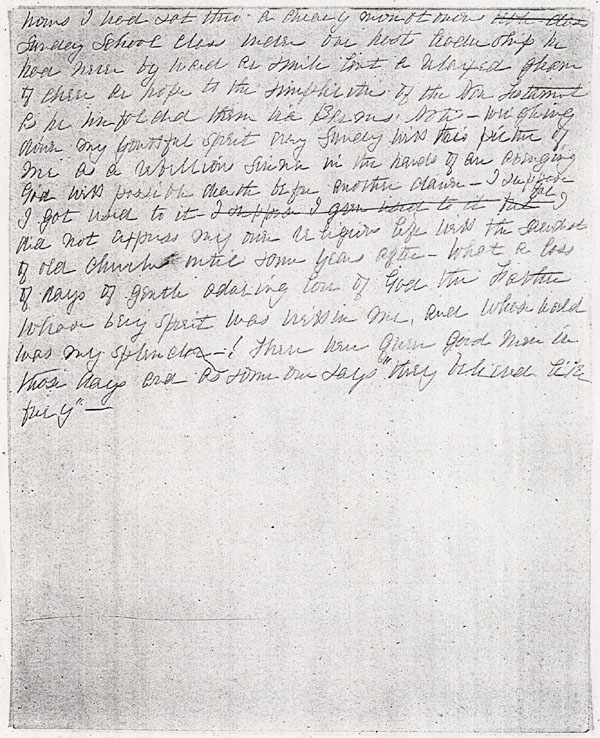 hours I had sat thro' a dreary monotonous
Sunday School class under our host leadership he
had never by word or smile lent a relaxed gleam
of cheer or hope to the simplicities of the New Testament
as he unfolded them via Barnes' Notes - weighing
down my youthful spirit every Sunday with this picture of
me as a rebellious sinner in the hands of an avenging
God with possible death before another dawn - I suppose
I got used to it - I suppose I grew used to it - but I
did not express my own religious life with the
of old church until some years after - What a loss
of days of gentle adoring love of God the Father
whose being spirit was within me, and whose world
was my splendor - ! There were good men in
those days and as some one says "they believed like
fury" -